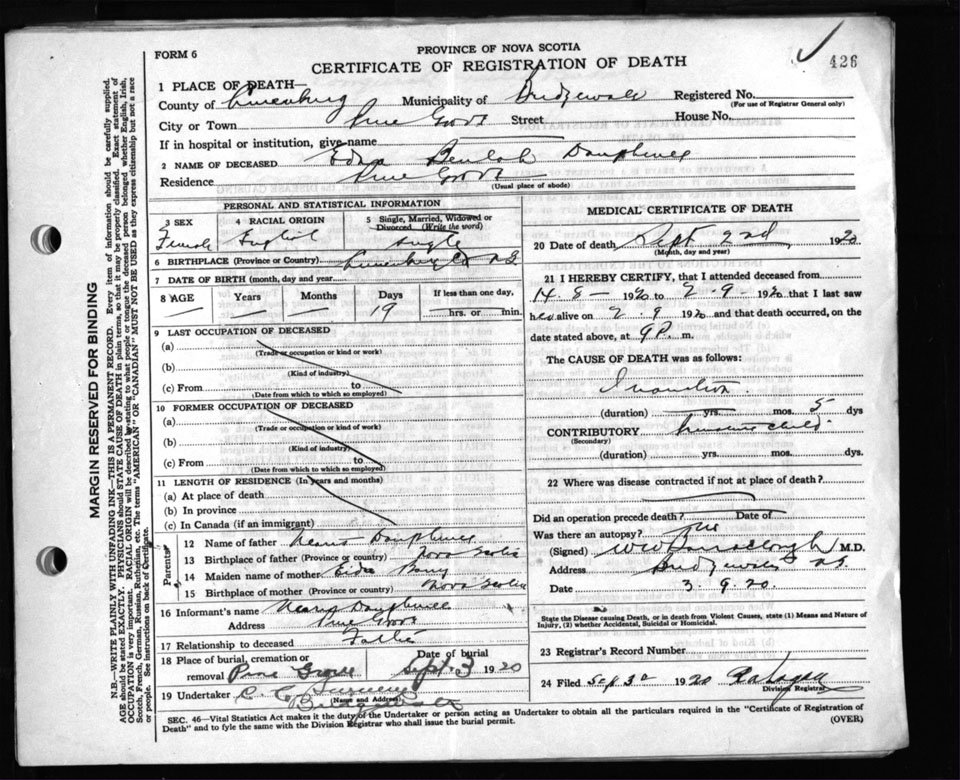 FORM 6
PROVINCE OF NOVA SCOTIA
CERTIFICATE OF REGISTRATION OF DEATH
426
1 PLACE OF DEATH—
County of Lunenburg Municipality of Bridgewater Registered No.
(For use of Registrar General only)
City or Town Pine Grove Street House No.
If in hospital or institution, give name
2 NAME OF DECEASED Edna Beulah Dauphinee
Residence Pine Grove
(Usual place of abode)
PERSONAL AND STATISTICAL INFORMATION
3 SEX Female
4 RACIAL ORIGIN English
5 Single, Married, Widowed or Divorced (Write the word) Single
6 BIRTHPLACE (Province or Country) Lunenburg Co N S
7 DATE OF BIRTH (month, day and year)
8 AGE Years Months Days 19 If less than one day, hrs. or min.
9 LAST OCCUPATION OF DECEASED
(a)
(Trade or occupation or kind or work)
(b)
(Kind of industry)
(c) From to
(Date from which to which so employed)
10 FORMER OCCUPATION OF DECEASED
(a)
(Trade or occupation or kind of work)
(b)
(Kind of industry)
(c) From to
(Date from which to which so employed)
11 LENGTH OF RESIDENCE (In years and months)
(a) At place of death
(b) In province
(c) In Canada (if an immigrant)
Parents
12 Name of father Dauphinee
13 Birthplace of father (Province or country) Nova Scotia
14 Maiden name of mother
15 Birthplace of mother (Province or country) Nova Scotia
16 Informant's name Dauphinee
Address Pine Grove
17 Relationship to deceased Father
18 Place of burial, cremation or removal Pine Grove
Date of burial Sept. 3 1920
19 Undertaker C. E.
(Name and Address)
Bridgewater
MEDICAL CERTIFICATE OF DEATH
20 Date of death Sept 2nd 1920
(Month, day and year)
21 I HEREBY CERTIFY, that I attended deceased from
14-8- 1920 to 2-9- 1920 that I last saw
her alive on 2.9 1920 and that death occurred, on the
date stated above, at 9P. m.
The CAUSE OF DEATH was as follows:
Inanition
(duration) yrs. mos. 5 dys
CONTRIBUTORY child.
(Secondary)
(duration) yrs. mos. dys.
22 Where was disease contracted if not at place of death?
Did an operation precede death? Date of
Was there an autopsy? No
(Signed) M.D.
Address Bridgewater N.S.
Date 3.9.20.
State the Disease causing Death, or in death from Violent Causes, state (1) Means and Nature of
Injury, (2) whether Accidental, Suicidal or Homicidal.
23 Registrar's Record Number
24 Filed Sep 3d 1920
Division Registrar
SEC. 46—Vital Statistics Act makes it the duty of the Undertaker or person acting as Undertaker to obtain all the particulars required in the "Certificate of Registration of
Death" and to fyle the same with the Division Registrar who shall issue the burial permit.
(OVER)
MARGIN RESERVED FOR BINDING
N.B.—WRITE PLAINLY WITH UNFADING INK—THIS IS A PERMANENT RECORD. Every item of information should be carefully supplied.
AGE should be stated EXACTLY. PHYSICIANS should STATE CAUSE OF DEATH in plain terms, so that it may be properly classified. Exact statement of
OCCUPATION is very important. RACIAL ORIGIN will be described by stating to what people or tongue the deceased person belonged whether English, Irish,
Scotch, French, German, Russian, Ruthenian, etc. The terms "AMERICAN" or "CANADIAN" MUST NOT BE USED as they express citizenship but not a race
or people. See instructions on back of Certificate.